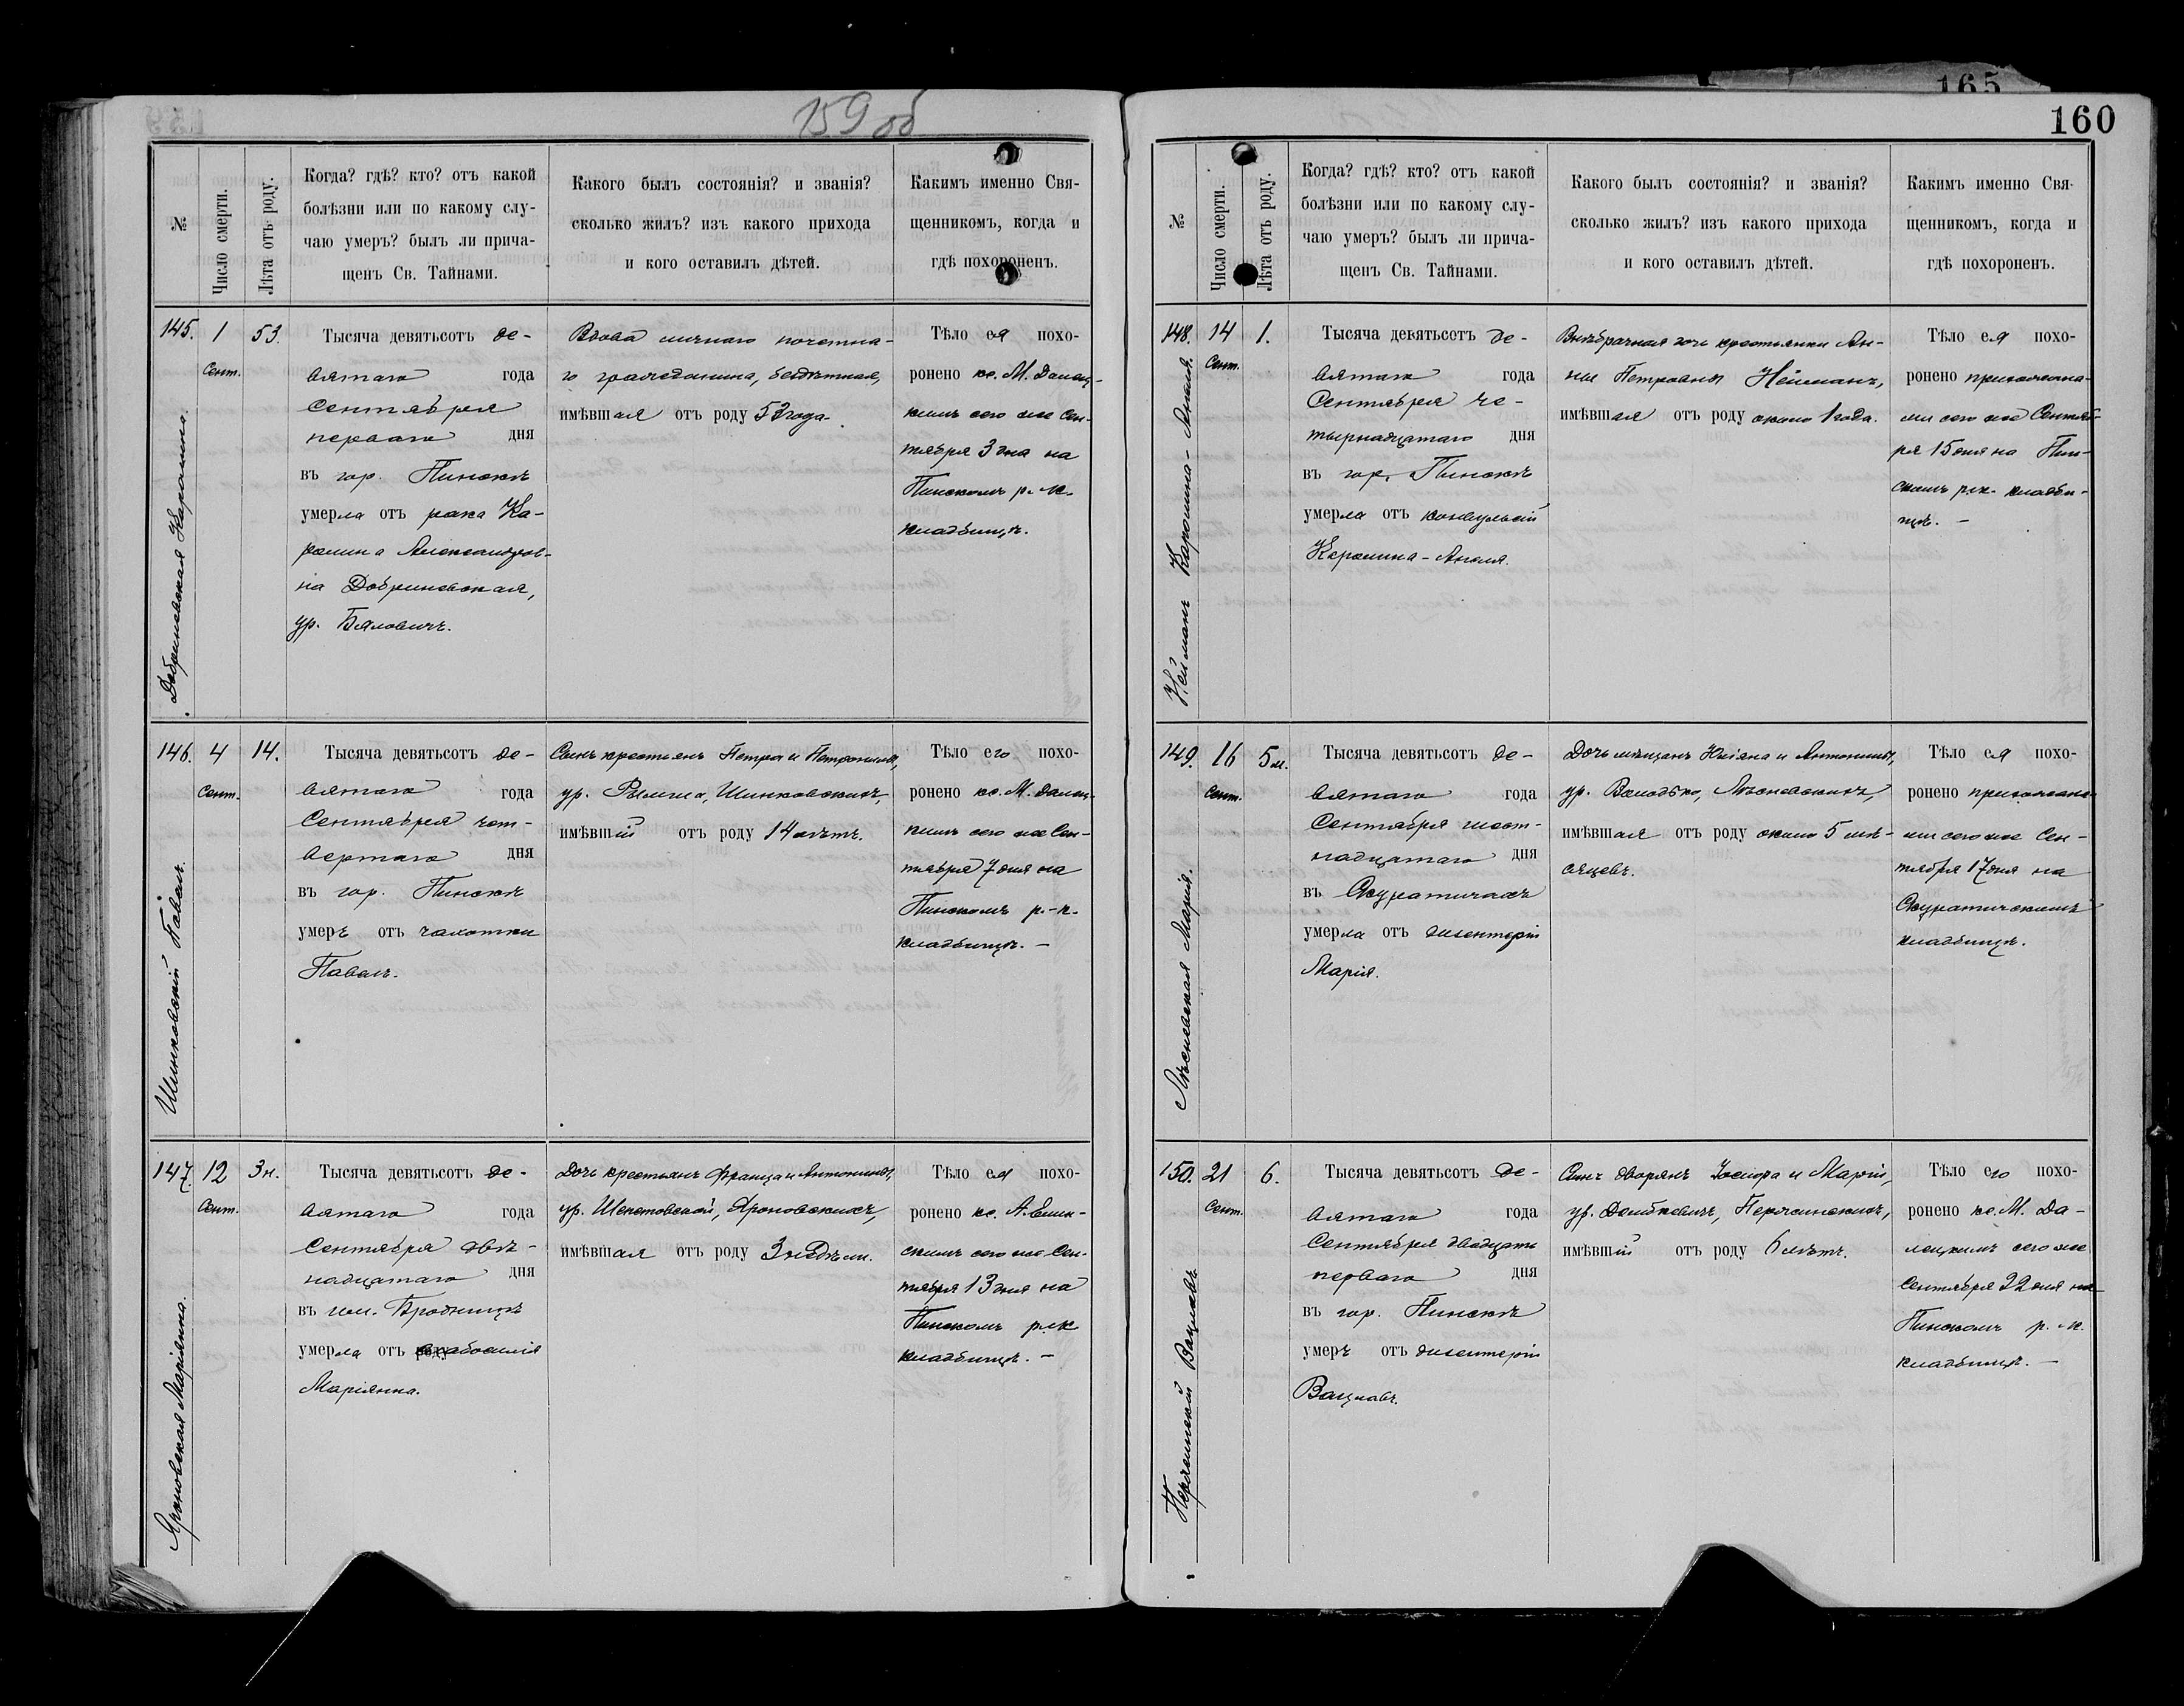 159 об
№
Число смерти.
Лѣта отъ роду.
Когда? гдѣ? кто? отъ какой
болѣзни или по какому слу-
чаю умеръ? былъ ли прича-
щенъ Св. Тайнами.
Какого былъ состоянія? и званія?
сколько жилъ? изъ какого прихода
и кого оставилъ дѣтей.
Какимъ именно Свя-
щенникомъ, когда и
гдѣ похороненъ.
145.
Добриневская Каролина.
1
Сент.
53.
Тысяча девятьсотъ де-
вятаго года
Сентября
перваго дня
въ гор. Пинскѣ
умерла отъ рака Ка-
ролина Александров-
на Добриневская,
ур.
Вдова личнаго почетна-
го гражданина, бездѣтная,
имѣвшая отъ роду 53 года.
Тѣло ея похо-
ронено кс. М. Далец-
кимъ сего же Сен-
тября 3 дня на
Пинскомъ р.-к.
кладбищѣ.
146.
Шинковскій Павелъ.
4
Сент.
14.
Тысяча девятьсотъ де-
вятаго года
Сентября чет-
вертаго дня
въ гор. Пинскѣ
умеръ отъ чахотки
Павелъ.
Сынъ крестьянъ Петра и Петронели,
ур. Шинковскихъ,
имѣвшій отъ роду 14 лѣтъ.
Тѣло его похо-
ронено кс. М. Далец-
кимъ сего же Сен-
тября 7 дня на
Пинскомъ р.-к.
кладбищѣ. —
147.
Яроновская Маріянна.
12
Сент.
3 н.
Тысяча девятьсотъ де-
вятаго года
Сентября двѣ-
надцатаго дня
въ им. Бродницѣ
умерла отъ слабосилія
Маріянна.
Дочь крестьянъ Франца и Антонины,
ур. Шекетовской, Яроновскихъ,
имѣвшая отъ роду 3 недѣли.
Тѣло ея похо-
ронено кс. А.
скимъ сего же Сен-
тября 13 дня на
Пинскомъ р.-к.
кладбищѣ. —
165
160
№
Число смерти.
Лѣта отъ роду.
Когда? гдѣ? кто? отъ какой
болѣзни или по какому слу-
чаю умеръ? былъ ли прича-
щенъ Св. Тайнами.
Какого былъ состоянія? и званія?
сколько жилъ? изъ какого прихода
и кого оставилъ дѣтей.
Какимъ именно Свя-
щенникомъ, когда и
гдѣ похороненъ.
148.
Нейманъ Каролина-Анеля.
14
Сент.
1.
Тысяча девятьсотъ де-
вятаго года
Сентября че-
тырнадцатаго дня
въ гор. Пинскѣ
умерла отъ конвульсій
Каролина-Анеля.
Внѣбрачная дочь крестьянки Ан-
ны Петровны Нейманъ,
имѣвшая отъ роду около 1 года.
Тѣло ея похо-
ронено прихожана-
ми сего же Сентяб-
ря 15 дня на Пин-
скомъ р.-к. кладби-
щѣ. —
149.
Лѣсневская Марія.
16
Сент.
5 м.
Тысяча девятьсотъ де-
вятаго года
Сентября шест-
надцатаго дня
въ Охуратичахъ
умерла отъ дизентеріи
Марія.
Дочь мѣщанъ Юліяна и Антонины,
ур. Володько, Лѣсневскихъ,
имѣвшая отъ роду около 5 мѣ-
сяцевъ.
Тѣло ея похо-
ронено прихожана-
ми сего же Сен-
тября 17 дня на
кладбищѣ.
150.
Вацлавъ
21
Сент.
6.
Тысяча девятьсотъ де-
вятаго года
Сентября двадцать
перваго дня
въ гор. Пинскѣ
умеръ отъ дизентеріи
Вацлавъ.
Сынъ дворянъ Іосифа и Маріи,
ур.
имѣвшій отъ роду 6 лѣтъ.
Тѣло его похо-
ронено кс. М. Да-
лецкимъ сего же
Сентября 22 дня на
Пинскомъ р.-к.
кладбищѣ. —